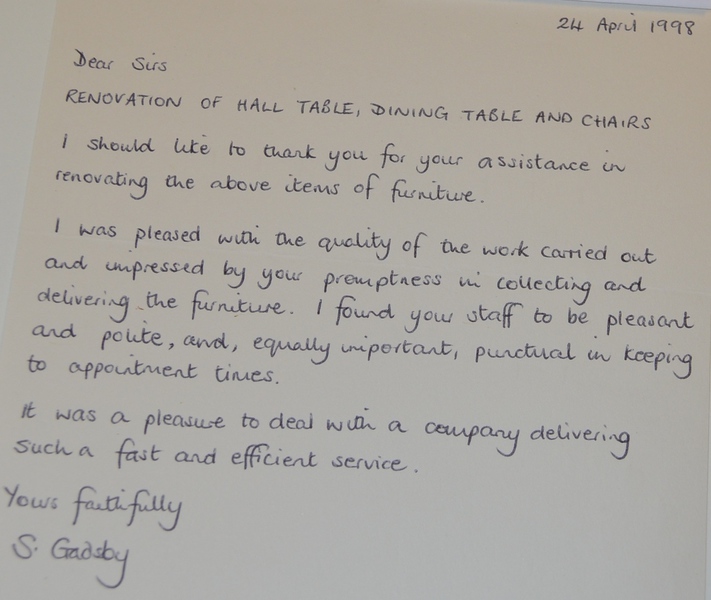 24 April 1998
Dear Sirs
RENOVATION OF HALL TABLE, DINING TABLE AND CHAIRS
I should like to thank you for your assistance in
renovating the above items of furniture.
I was pleased with the quality of the work carried out
and impressed by your promptness in collecting and
delivering the furniture. I found your staff to be pleasant
and polite, and, equally important, punctual in keeping
to appointment times.
It was a pleasure to deal with a company delivering
such a fast and efficient service.
Yours faithfully
S. Gadsby